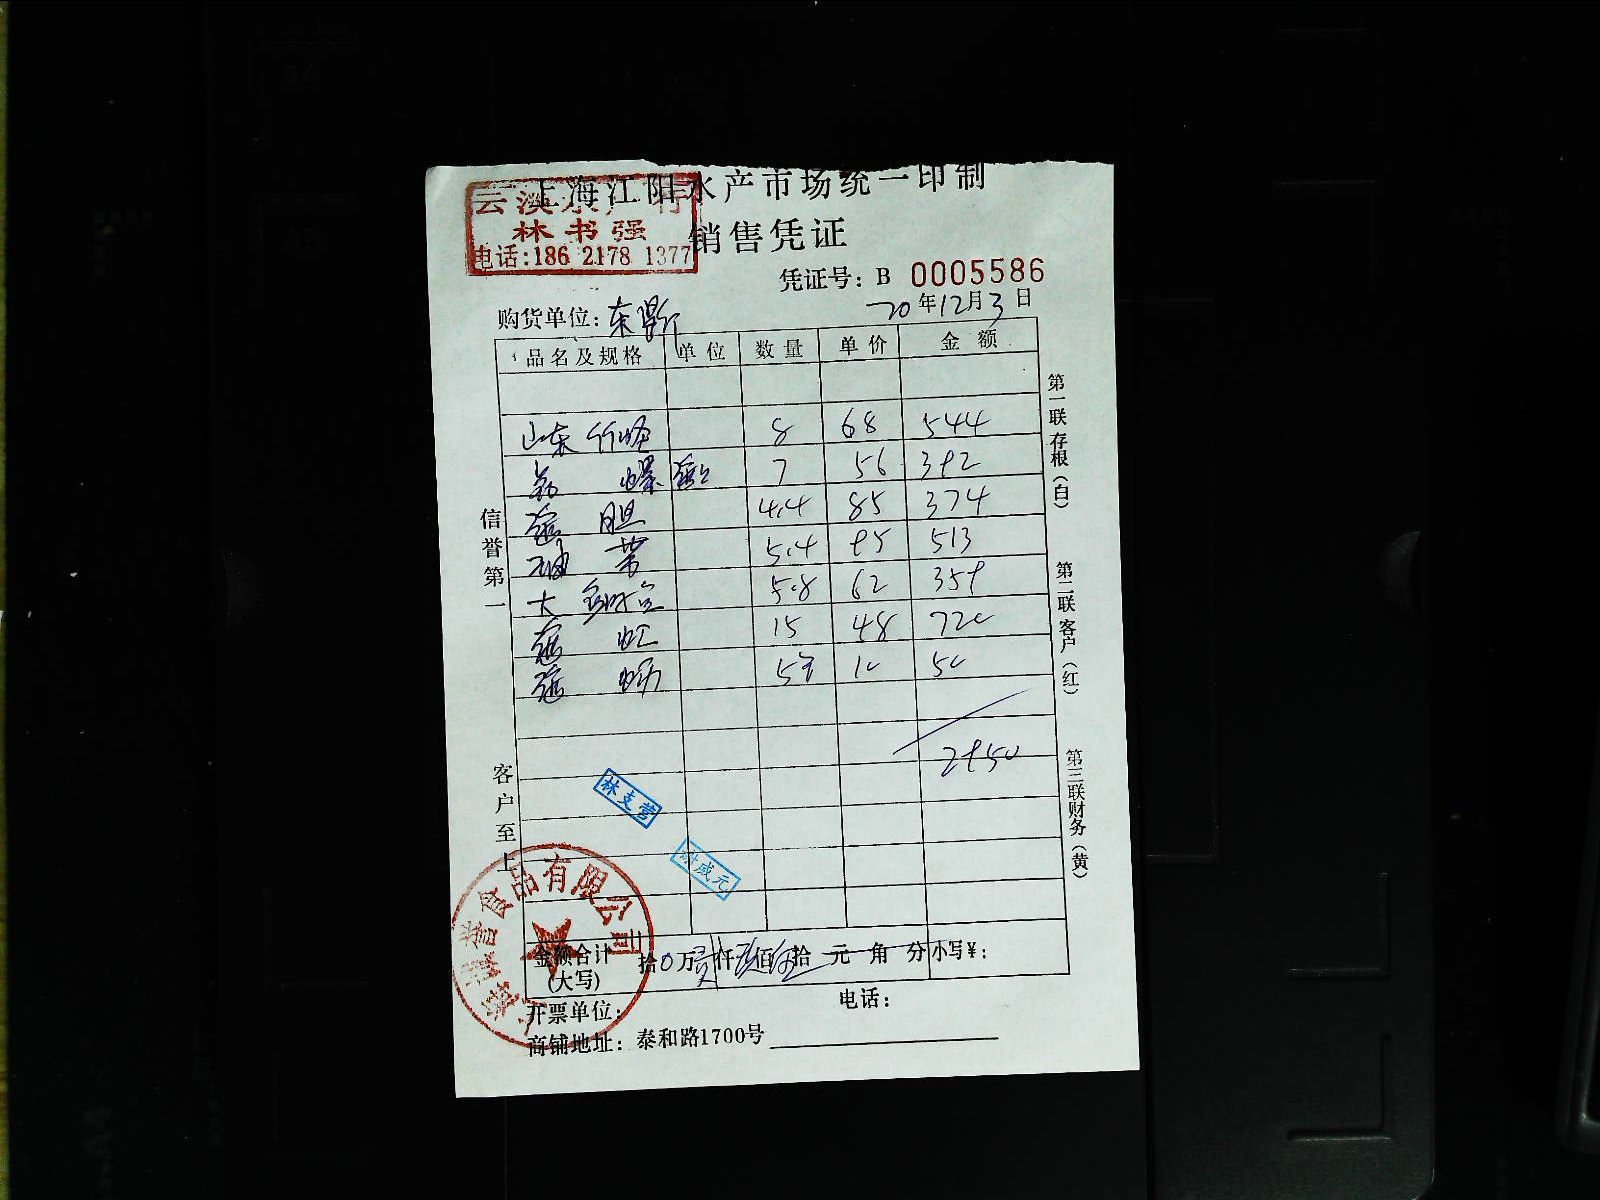 上海江阳水产市场统一印制
林书强
电话:186 2178 1377
销售凭证
凭证号: B 0005586
购货单位: 东
20年12月3日
品名及规格 单位 数量 单价 金额
山东 8 68 544
螺 7 56 392
胆 4.4 85 374
带 5.4 95 513
大 5.8 62 359
虹 15 48 720
蛎 5 10 50
2950
信誉第一
客户至上
第一联存根(白)
第二联客户(红)
第三联财务(黄)
林支营
成元
食品有限公司
金额合计(大写) 拾0万 仟 佰 拾 元 角 分 小写¥:
开票单位: 电话:
商铺地址: 泰和路1700号